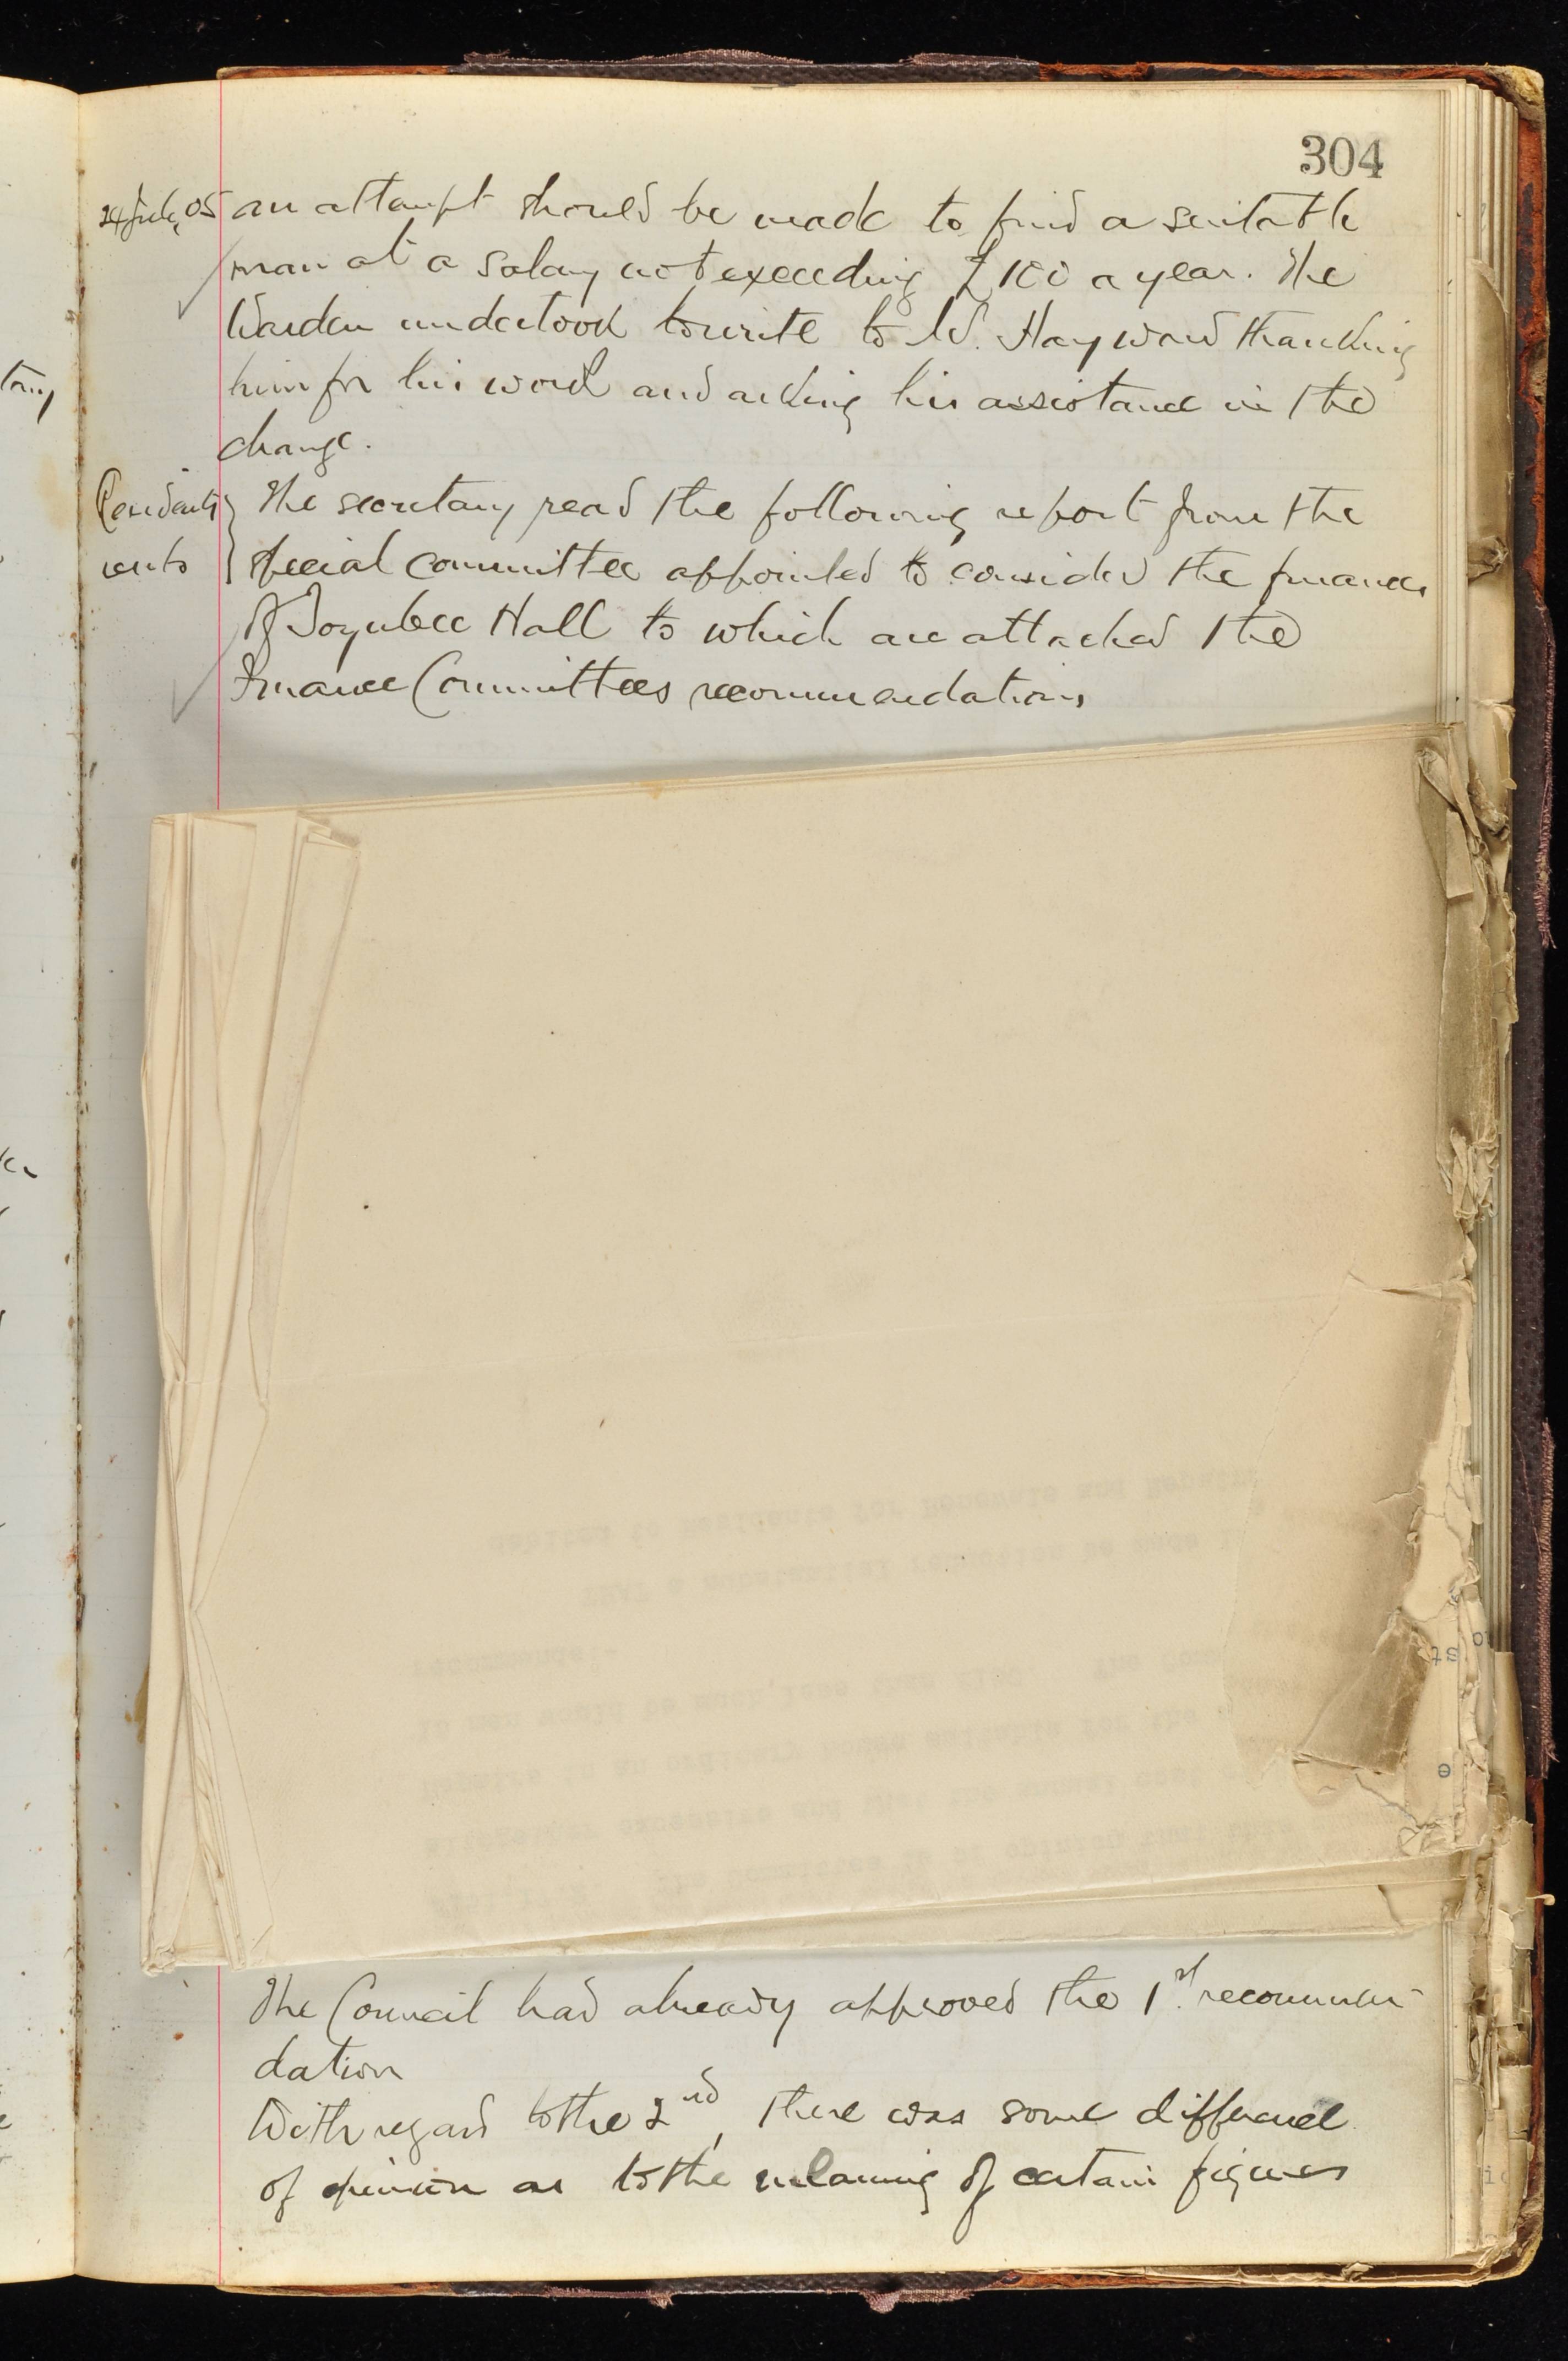 304
24 July, 05
an attempt should be made to find a suitable
man at a salary not exceeding £100 a year. The
Warden undertook to write to W. Hayward thanking
him for his work and asking his assistance in the
change.
Residents
rents
The secretary read the following report from the
special committee appointed to consider the finances
of Toynbee Hall to which are attached the
Finance Committees recommendations
The Council had already approved the 1st. recommen-
dation
With regard to the 2nd, there was some difference
of opinion as to the meaning of certain figures